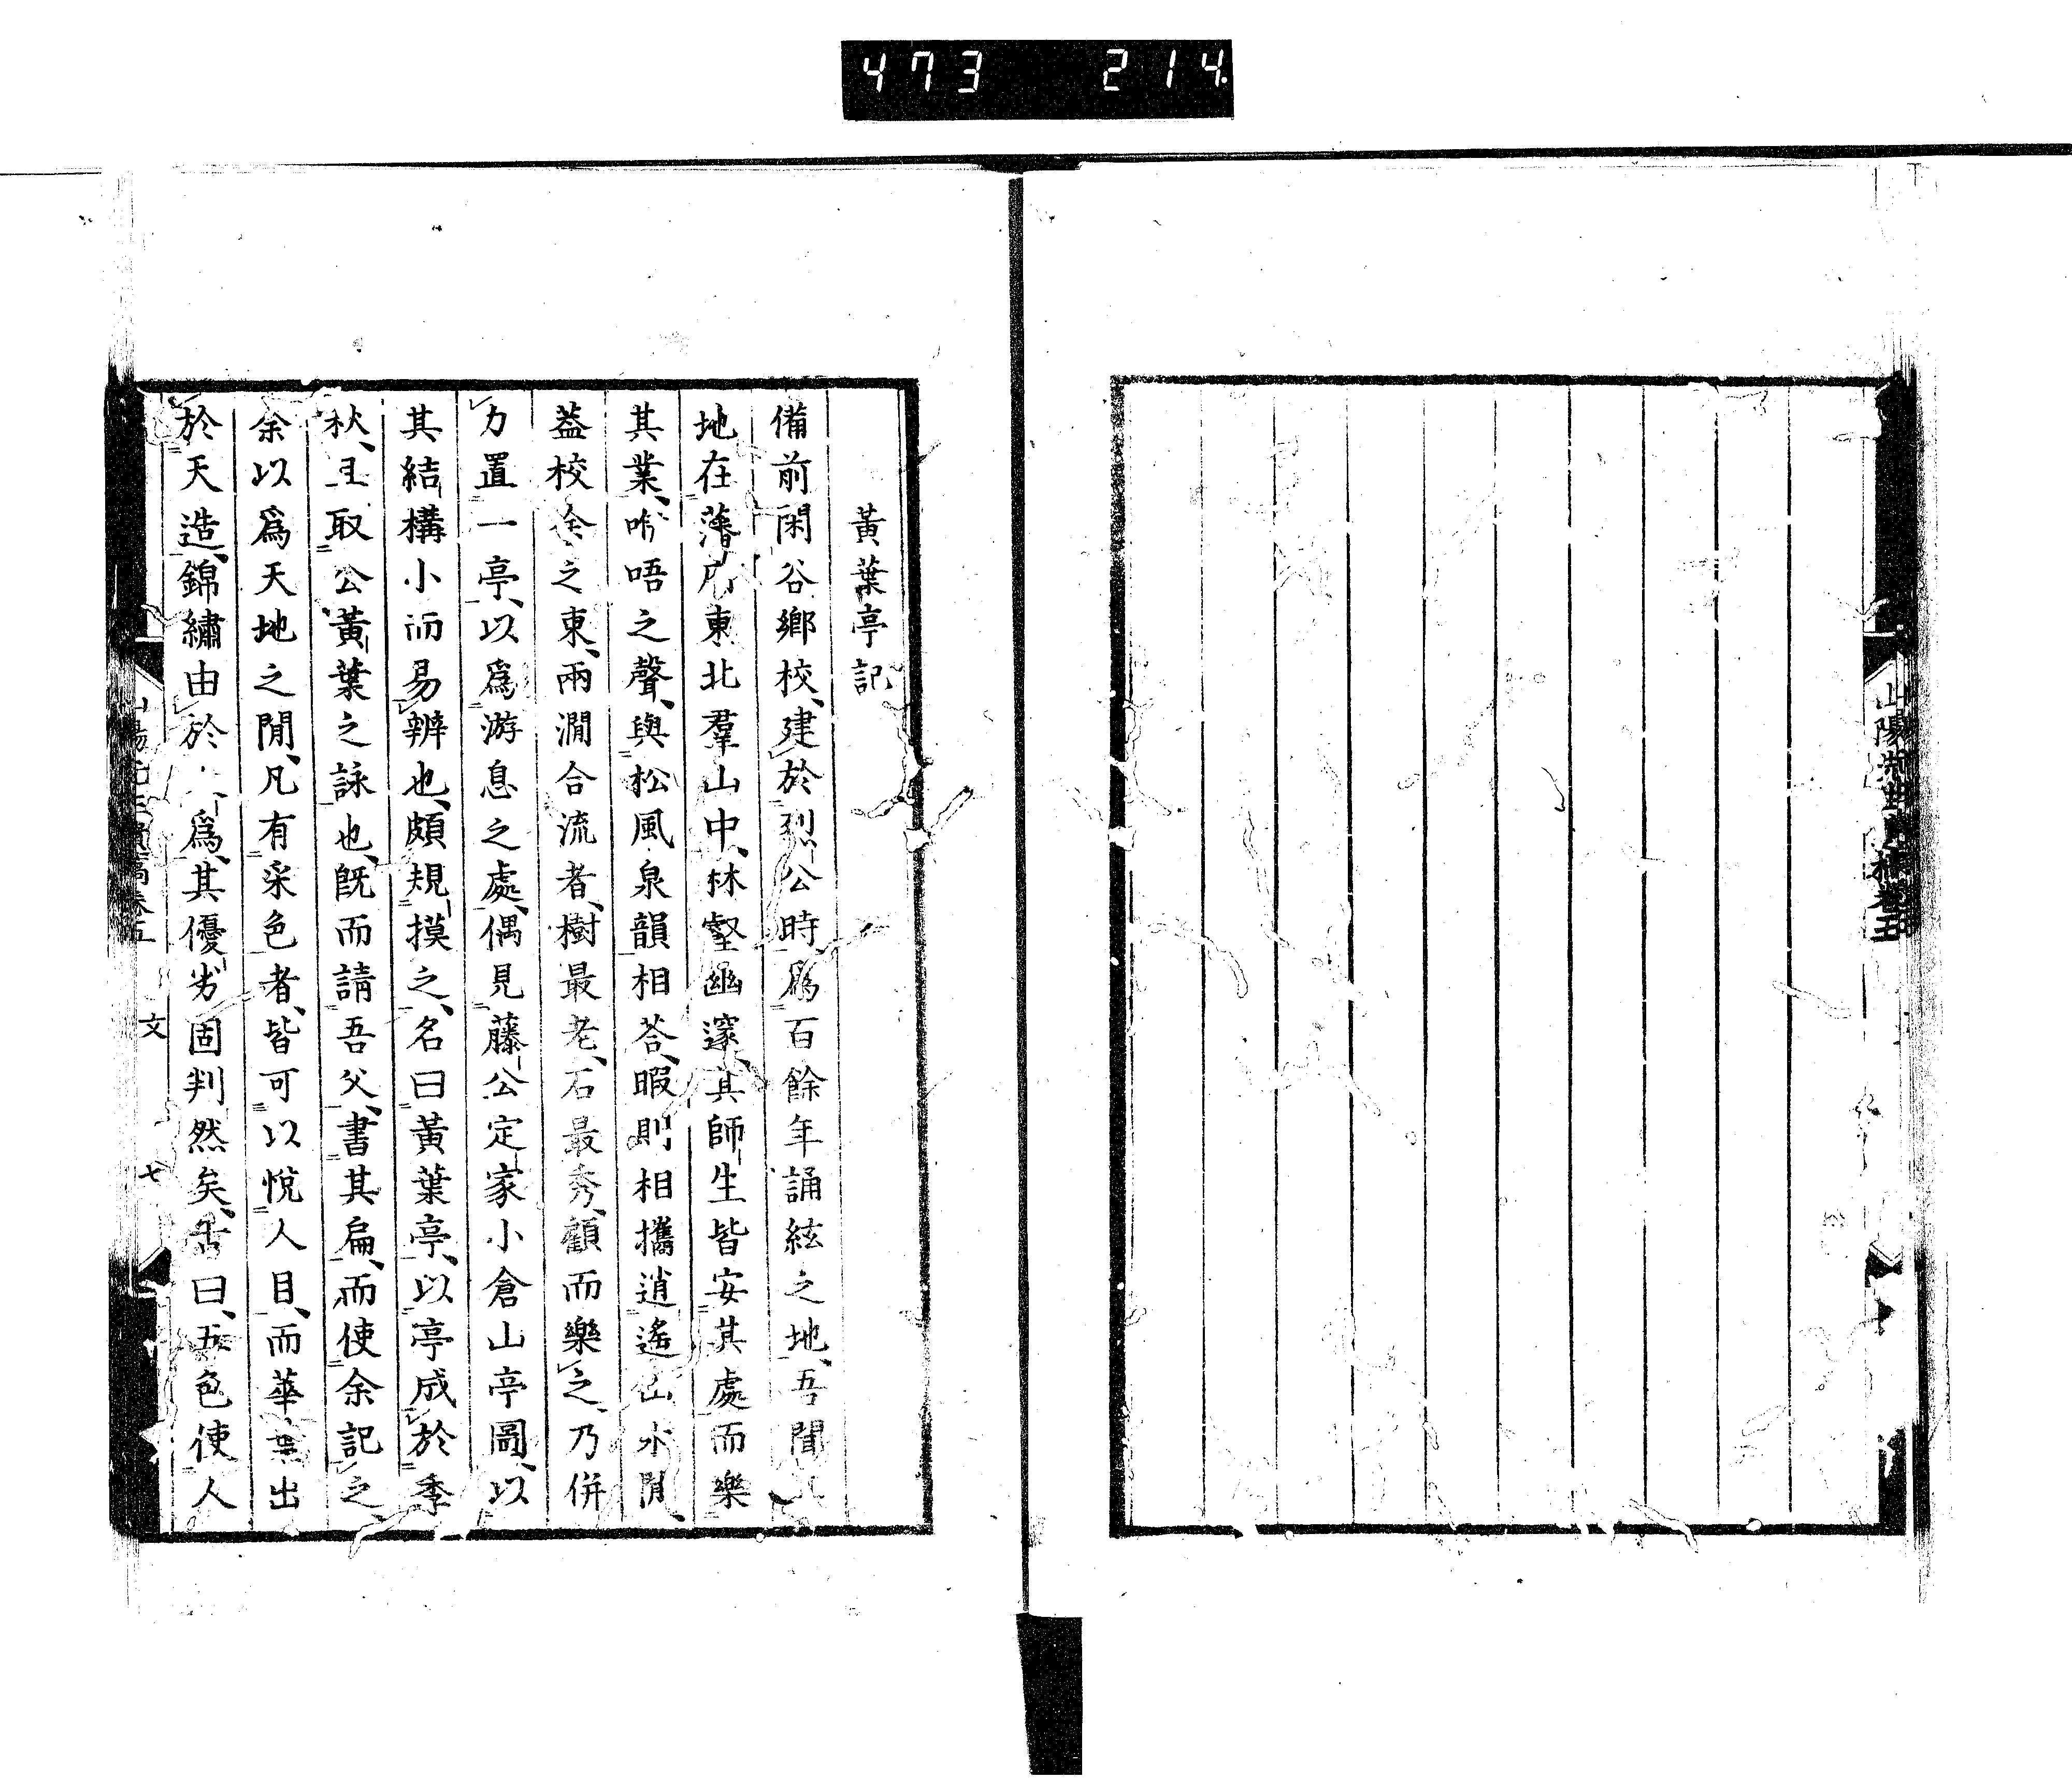 473 214
黃葉亭記
備前閑谷鄉校、建於烈公時、爲百餘年誦絃之地、吾聞其
地在藩府東北羣山中、林壑幽邃、其師生皆安其處而樂
其業、咿唔之聲、與松風泉韻相荅、暇則相攜逍遙山水閒、
葢校舍之東、兩澗合流者、樹最老、石最秀、顧而樂之、乃併
力置一亭、以爲游息之處、偶見藤公定家小倉山亭圖、以
其結構小而易辨也、頗規摸之、名曰黃葉亭、以亭成於季
秋、且取公黃葉之詠也、旣而請吾父、書其扁、而使余記之、
余以爲天地之閒、凡有采色者、皆可以悅人目、而華葉出
於天造、錦繡由於人爲、其優劣固判然矣、古曰、五色使人
文
七